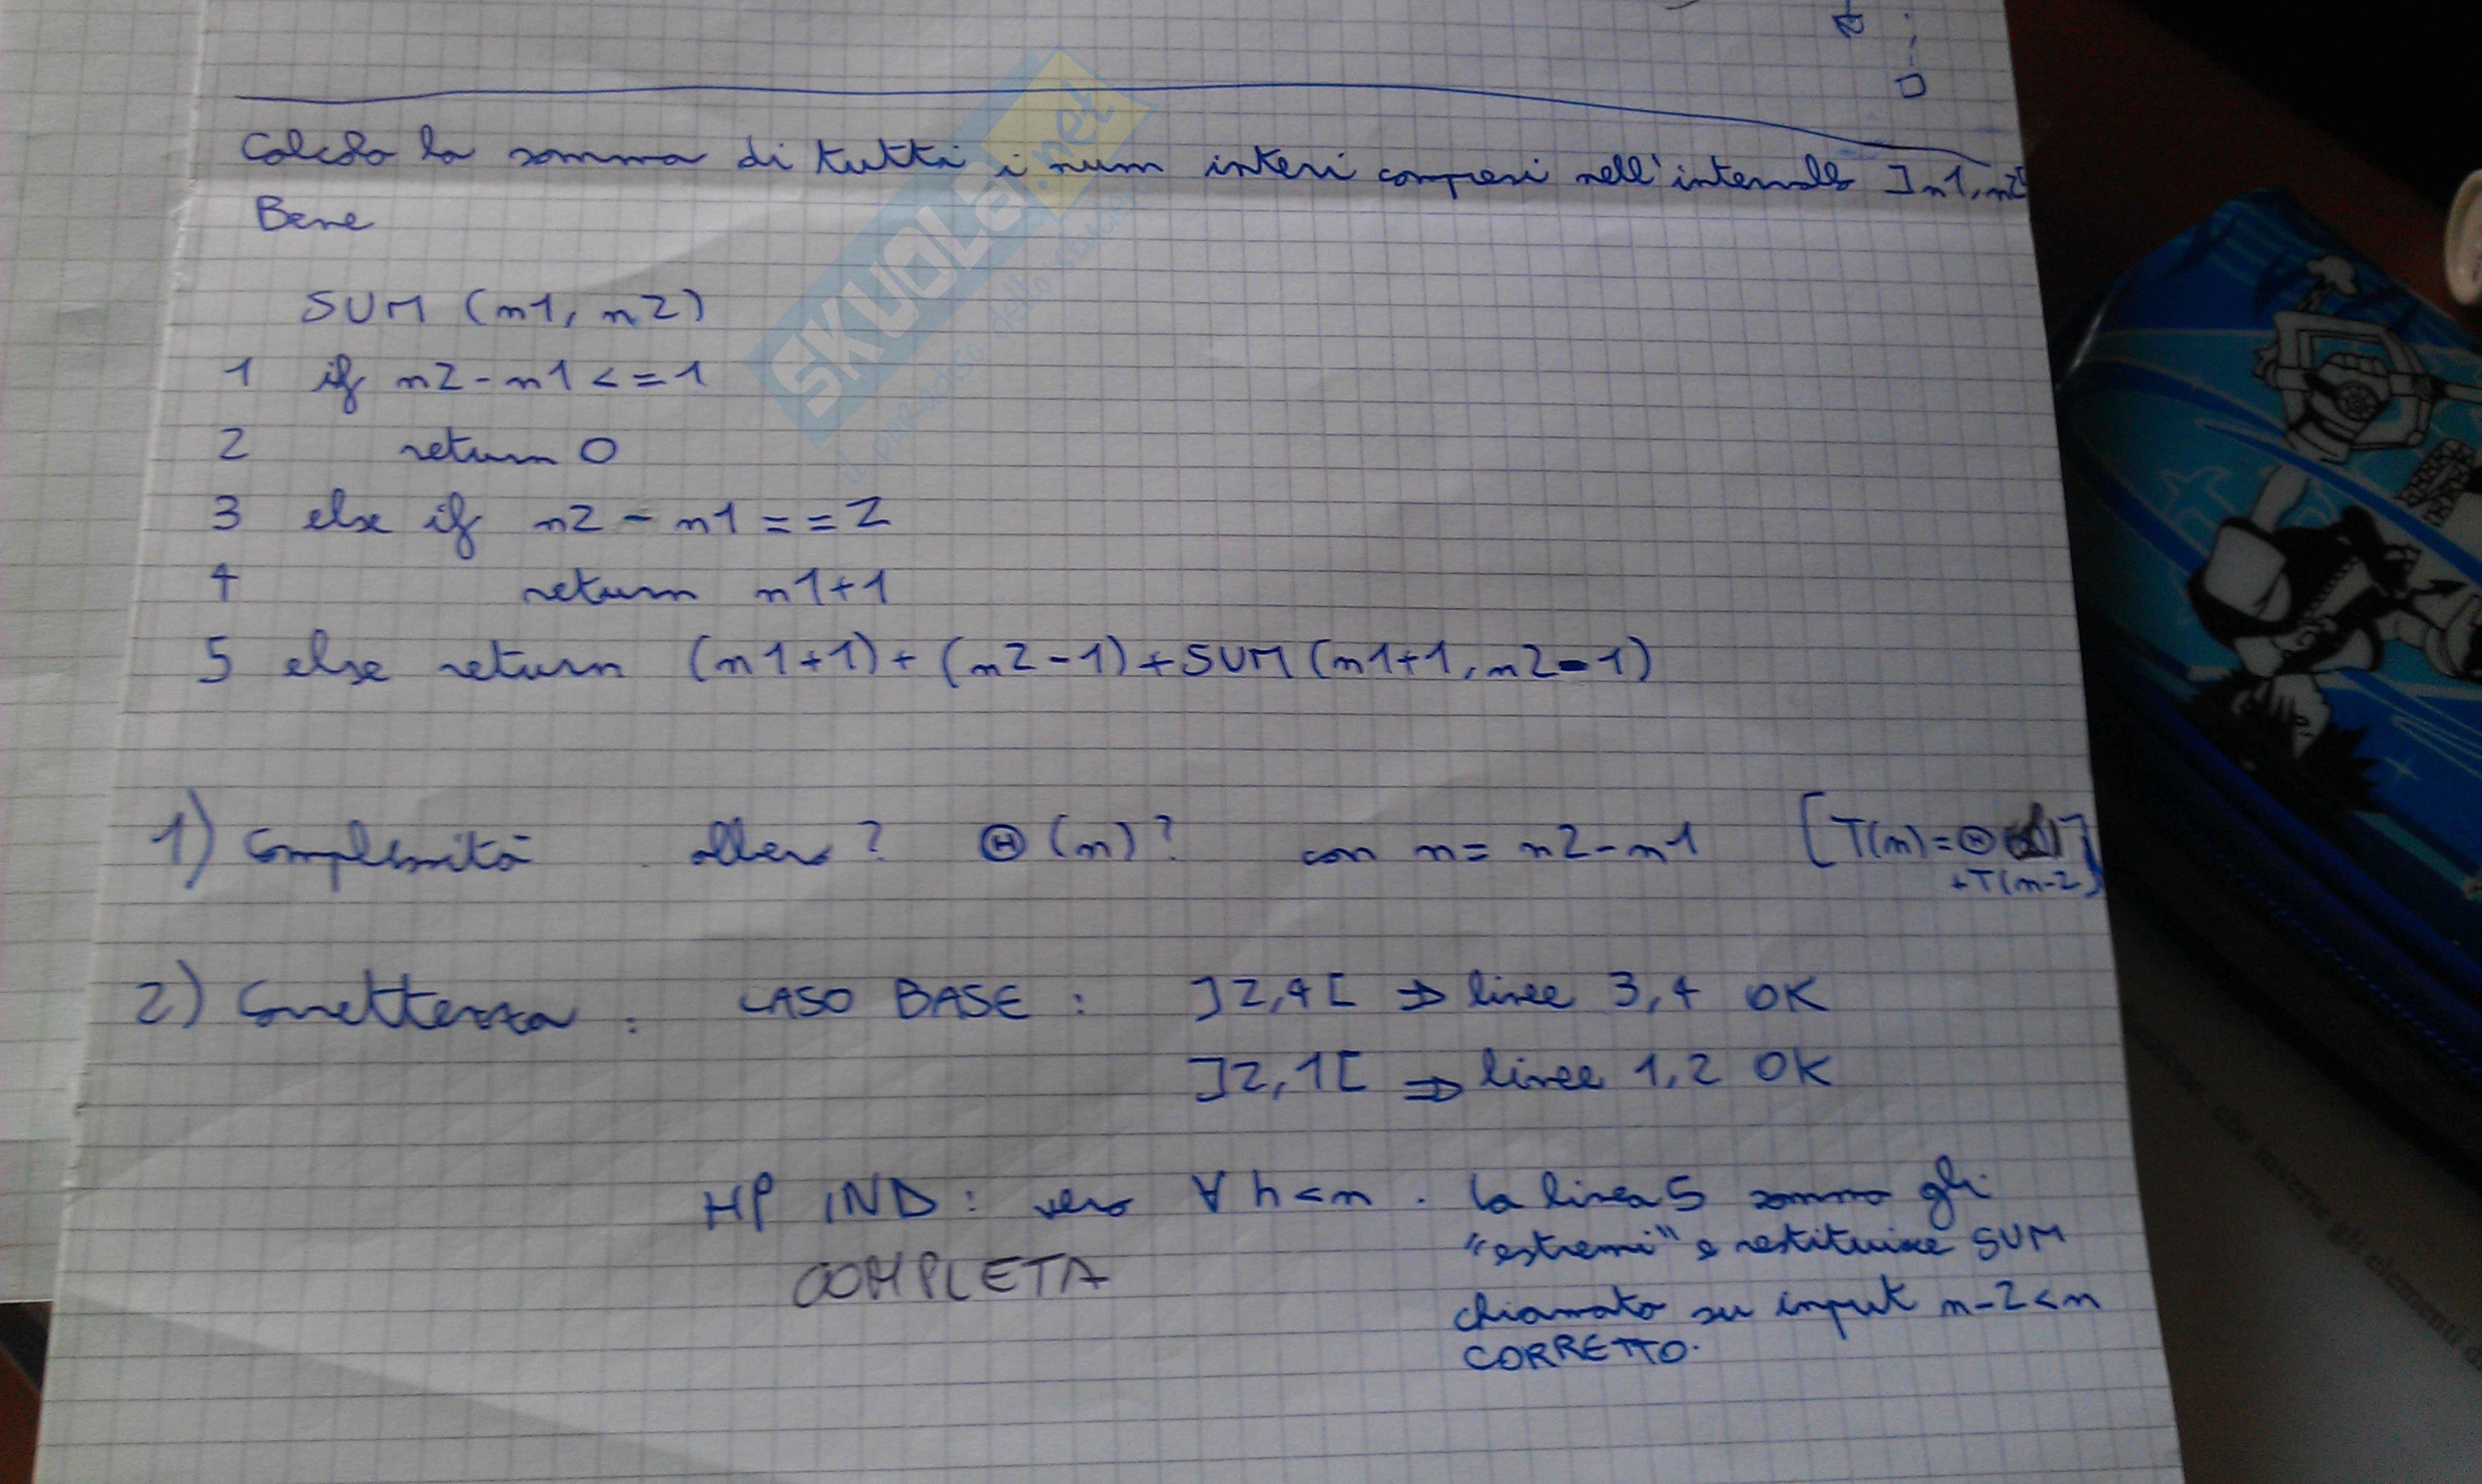 Calcolo la somma di tutti i num interi compresi nell'intervallo ]n1, n2[
Bene
SUM (n1, n2)
1 if n2 - n1 <= 1
2 return 0
3 else if n2 - n1 == 2
4 return n1+1
5 else return (n1+1) + (n2-1) + SUM (n1+1, n2-1)
1) Complessità albero? Θ(n)? con n = n2-n1 [T(n) = Θ
+T(n-2)
2) Correttezza: CASO BASE: ]2,4[ ⇒ linee 3,4 OK
]2,1[ ⇒ linee 1,2 OK
HP IND: vero ∀ h<n. La linea 5 somma gli
COMPLETA "estremi" e restituisce SUM
chiamato su input n-2<n
CORRETTO.
SKUOLA.net
il portale dello studente
che inverte gli elementi d